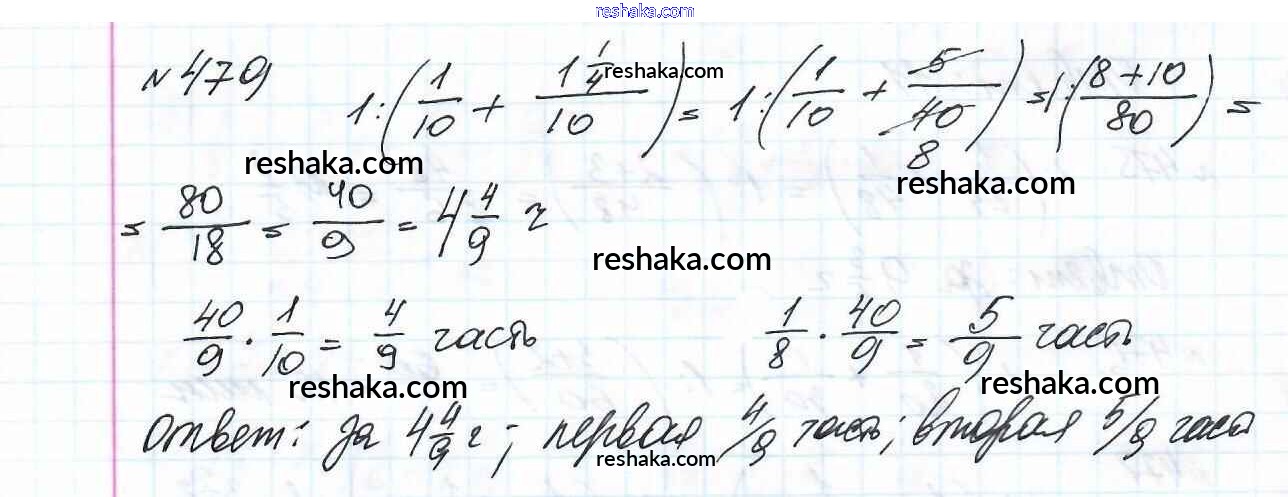 reshaka.com
№ 479
1:(1/10 + 1 1/4/10) = 1:(1/10 + 5/40) = 1:(8+10/80) =
reshaka.com
8
reshaka.com
reshaka.com
= 80/18 = 40/9 = 4 4/9 ч
reshaka.com
40/9 · 1/10 = 4/9 часть 1/8 · 40/9 = 5/9 часть
reshaka.com
reshaka.com
Ответ: за 4 4/9 ч; первая 4/9 часть; вторая 5/9 част
reshaka.com